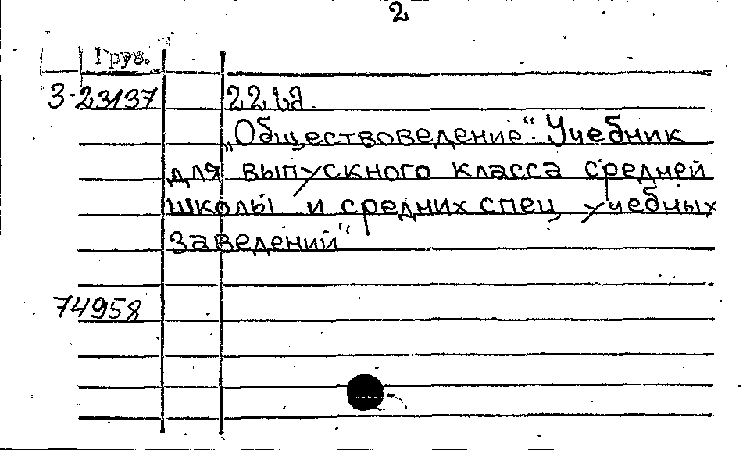 2
Груз.
3-23137
„Обществоведение“. Учебник
для выпускного класса средней
школы и средних спец учебных
заведений“
74958